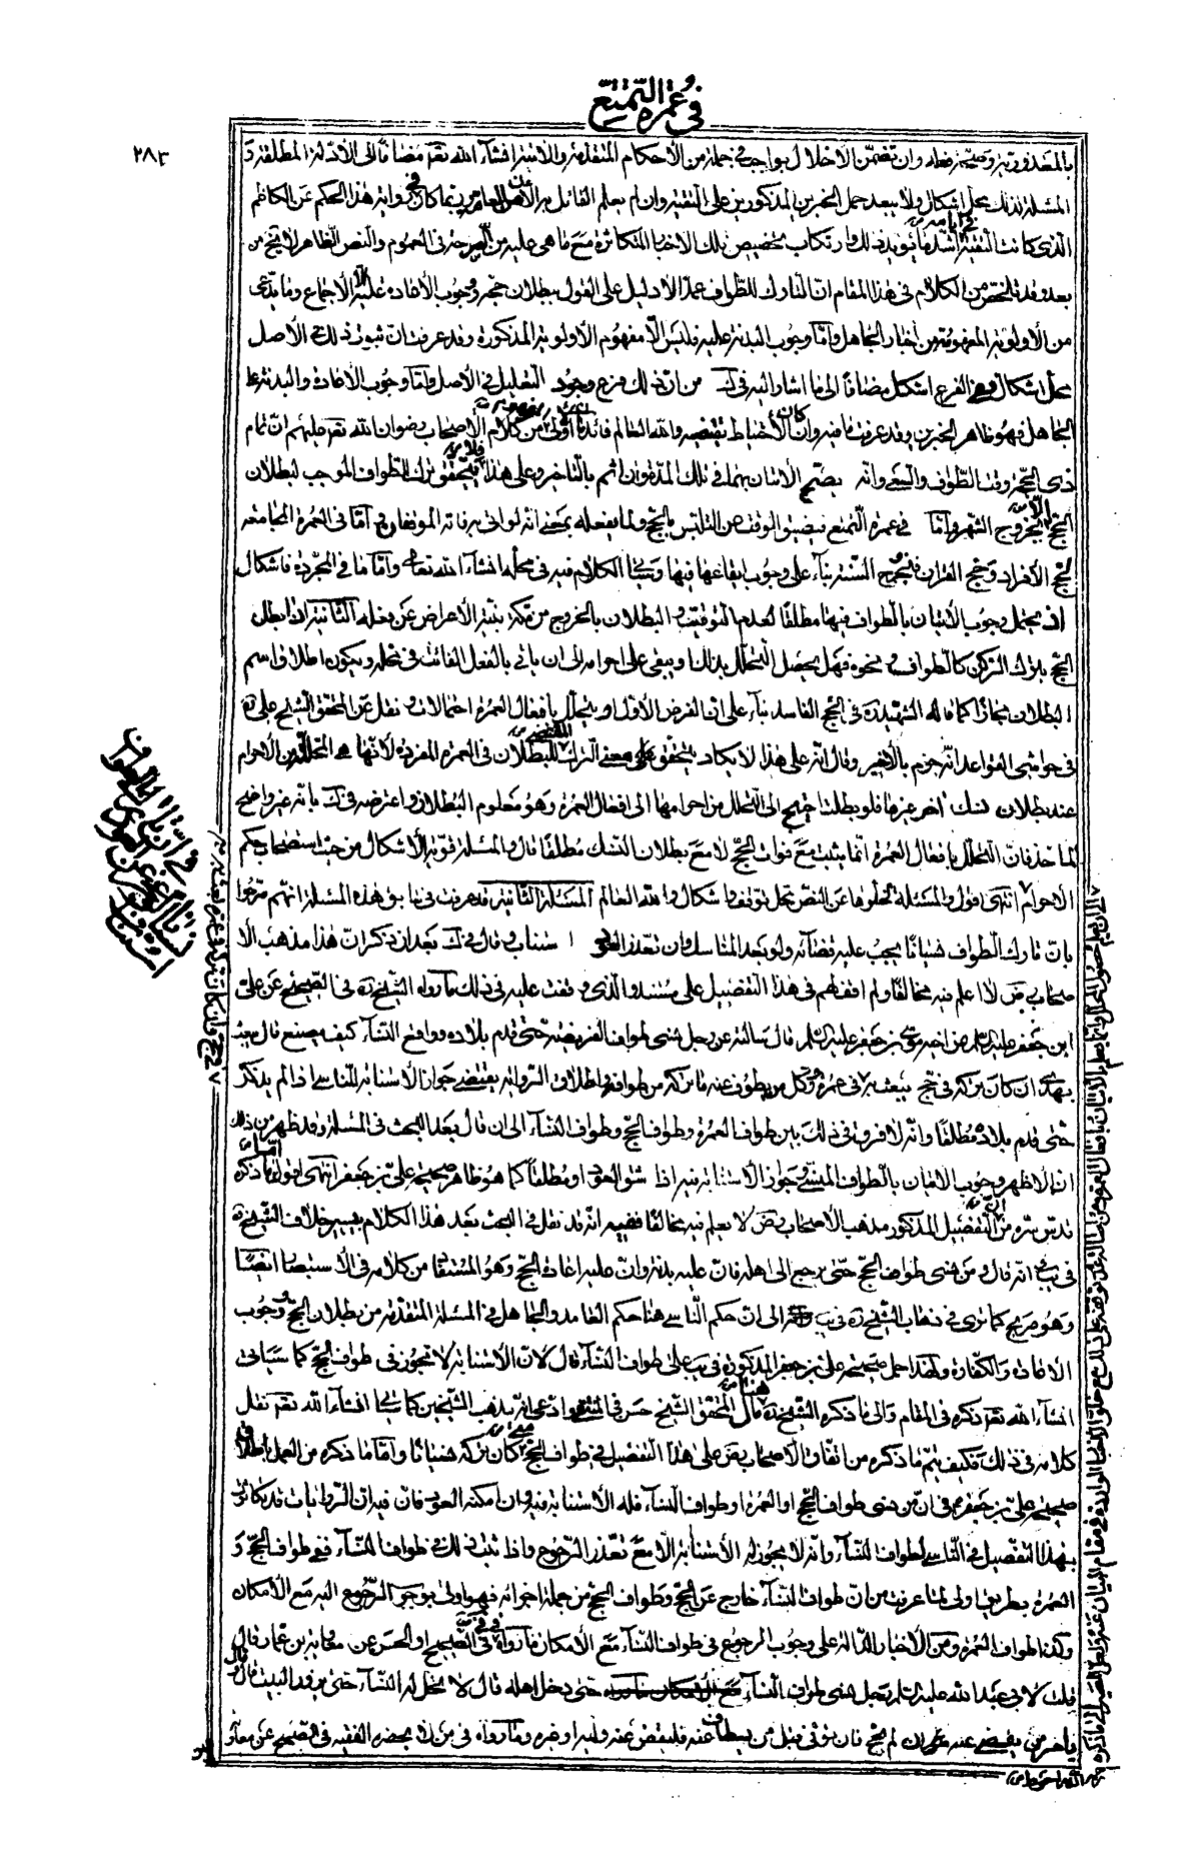 في عمرة التمتع
٢٨٣
بالمعذورية وصحة فعله وان تضمن الاخلال بواجب في جملة من الاحكام المتقدمة والاتية انشاء الله تعم مضافا الى الادلة المطلقة و
المسئلة لذلك محل اشكال ولا يبعد حمل الخبرين المذكورين على التقية وان لم يعلم القائل به الان من العامة فربما كان في رواية هذا الحكم عن الكاظم
الذي كانت التقية في ايامه اشد ما يؤيد ذلك وارتكاب تخصيص تلك الاخبار المتكاثرة مع ما هي عليه من الصراحة في العموم والنص الظاهر لا يخ من
بعد وقد تلخص من الكلام في هذا المقام ان التارك للطواف عمدا لا دليل على القول ببطلان حجه ووجوب الاعادة عليه الا الاجماع وما يدعى
من الاولوية المفهومة من اخبار الجاهل واما وجوب البدنة عليه فليس الا مفهوم الاولوية المذكورة وقد عرفت ان ثبوت ذلك في الاصل
محل اشكال ففي الفرع اشكل مضافا الى ما اشار اليه في ك من ان ذلك فرع وجود التعليل في الاصل واما وجوب الاعادة والبدنة على
الجاهل فهو ظاهر الخبرين وقد عرفت ما فيه وان كان الاحتياط يقتضيه والله العالم فائدة من كلام الاصحاب رضوان الله تعم عليهم ان تمام
ذي الحجة وقت الطواف والسعي وانه يصح الاتيان بهما في تلك المدة وان اثم بالتاخير وعلى هذا فلا يتحقق ترك الطواف الموجب لبطلان
الحج الا بخروج الشهر واما في عمرة التمتع فبضيق الوقت عن التلبس بالحج ولما يفعله بمعنى انه لو اتى به فاته الموقفان واما في العمرة المجامعة
لحج الافراد وحج القران فبخروج السنة بناء على وجوب ايقاعها فيها وسيجئ الكلام فيه في محله انشاء الله تعالى واما ما في المجردة فاشكال
اذ يحتمل وجوب الاتيان بالطواف فيها مطلقا لعدم التوقيت والبطلان بالخروج من مكة بنية الاعراض عن فعله الثانية اذا بطل
الحج بترك الركن كالطواف ونحوه فهل يحصل التحلل بذلك او يبقى على احرامه الى ان ياتي بالفعل الفائت في محله ويكون اطلاق اسم
البطلان مجازا كما قاله الشهيد ره في الحج الفاسد بناء على ان الفرض الاول او يتحلل بافعال العمرة احتمالات ونقل عن المحقق الشيخ علي ره
في حواشي القواعد انه جزم بالاخير وقال انه على هذا لا يكاد يتحقق معنى الترك المقتضي للبطلان في العمرة المفردة لانها هي المحللة من الاحرام
عند بطلان نسك اخر غيرها فلو بطلت احتيج الى التحلل من احرامها الى افعال العمرة وهو معلوم البطلان واعترضه في ك بانه غير واضح
الماخذ فان التحلل بافعال العمرة انما يثبت مع فوات الحج لا مع بطلان النسك مطلقا قال والمسئلة قوية الاشكال من حيث استصحاب حكم
الاحرام انتهى اقول والمسئلة لخلوها عن النص محل توقف واشكال والله العالم المسئلة الثانية قد عرفت في ما سبق هذه المسئلة انهم صرحوا
بان تارك الطواف نسيانا يجب عليه قضائه ولو بعد المناسك فان تعذر العود استناب وقال في ك بعد ان ذكر ان هذا مذهب الا
صحاب رض لا اعلم فيه مخالفا ولم اقف لهم في هذا التفصيل على مستند والذي وقفت عليه في ذلك ما رواه الشيخ ره في الصحيح عن علي
ابن جعفر عليه السلم عن اخيه موسى بن جعفر عليه السلم قال سالته عن رجل نسي طواف الفريضة حتى قدم بلاده وواقع النساء كيف يصنع قال يبعث
بهدى ان كان تركه في حج يبعث به في عمرة ووكل من يطوف عنه ما تركه من طوافه واطلاق الرواية يقتضي جواز الاستنابة للناسي اذا لم يذكر
حتى قدم بلاده مطلقا وانه لا فرق في ذلك بين طواف العمرة وطواف الحج وطواف النساء الى ان قال بعد البحث في المسئلة وقد ظهر من ذلك
ان الاظهر وجوب الاتيان بالطواف المنسي وجواز الاستنابة فيه اذا شق العود او مطلقا كما هو ظاهر صحيحة علي بن جعفر انتهى اقول اما ما ذكره
قدس سره من ان التفصيل المذكور مذهب الاصحاب رض لا يعلم فيه مخالفا ففيه انه قد نقل في البحث بعد هذا الكلام بيسير خلاف الشيخ ره
في يب انه قال ومن نسي طواف الحج حتى يرجع الى اهله فان عليه بدنة وان عليه اعادة الحج وهو المستفاد من كلامه في الاستبصار ايضا
وهو صريح كما ترى في ذهاب الشيخ ره في يب الى ان حكم الناسي هنا حكم العامد والجاهل في المسئلة المتقدمة من بطلان الحج ووجوب
الاعادة والكفارة ولهذا حمل صحيحة علي بن جعفر المذكورة في يب على طواف النساء قال لان الاستنابة لا تجوز في طواف الحج كما سياتي
انشاء الله تعم ذكره في المقام والى ما ذكره الشيخ ره هنا مال المحقق الشيخ حسن في المنتقى وادعى انه مذهب الشيخين كما سيجئ انشاء الله تعم نقل
كلامه في ذلك فكيف يتم ما ذكره من اتفاق الاصحاب رض على هذا التفصيل في طواف الحج متى كان تركه نسيانا واما ما ذكره من العمل باطلاق
صحيحة علي بن جعفر في ان من نسي طواف الحج او العمرة او طواف النساء فله الاستنابة فيه وان امكنه العود فان فيه ان الروايات قد تكاثرت
بهذا التفصيل في الناسي لطواف النساء وانه لا يجوز له الاستنابة الا مع تعذر الرجوع واذا ثبت ذلك في طواف النساء ففي طواف الحج و
العمرة بطريق اولى لما عرفت من ان طواف النساء خارج عن الحج وطواف الحج من جملة اجزائه فهو اولى بوجوب الرجوع اليه مع الامكان
وكذا طواف العمرة ومن الاخبار الدالة على وجوب الرجوع في طواف النساء مع الامكان ما رواه في في في الصحيح او الحسن عن معاوية بن عمار قال
قلت لابي عبد الله عليه السلم رجل نسي طواف النساء حتى دخل اهله قال لا تحل له النساء حتى يزور البيت وقال
يامر من يقضي عنه ان لم يحج فان توفي قبل ان يطاف عنه فليقض عنه وليه او غيره وما رواه في من لا يحضره الفقيه في الصحيح عن معاوية